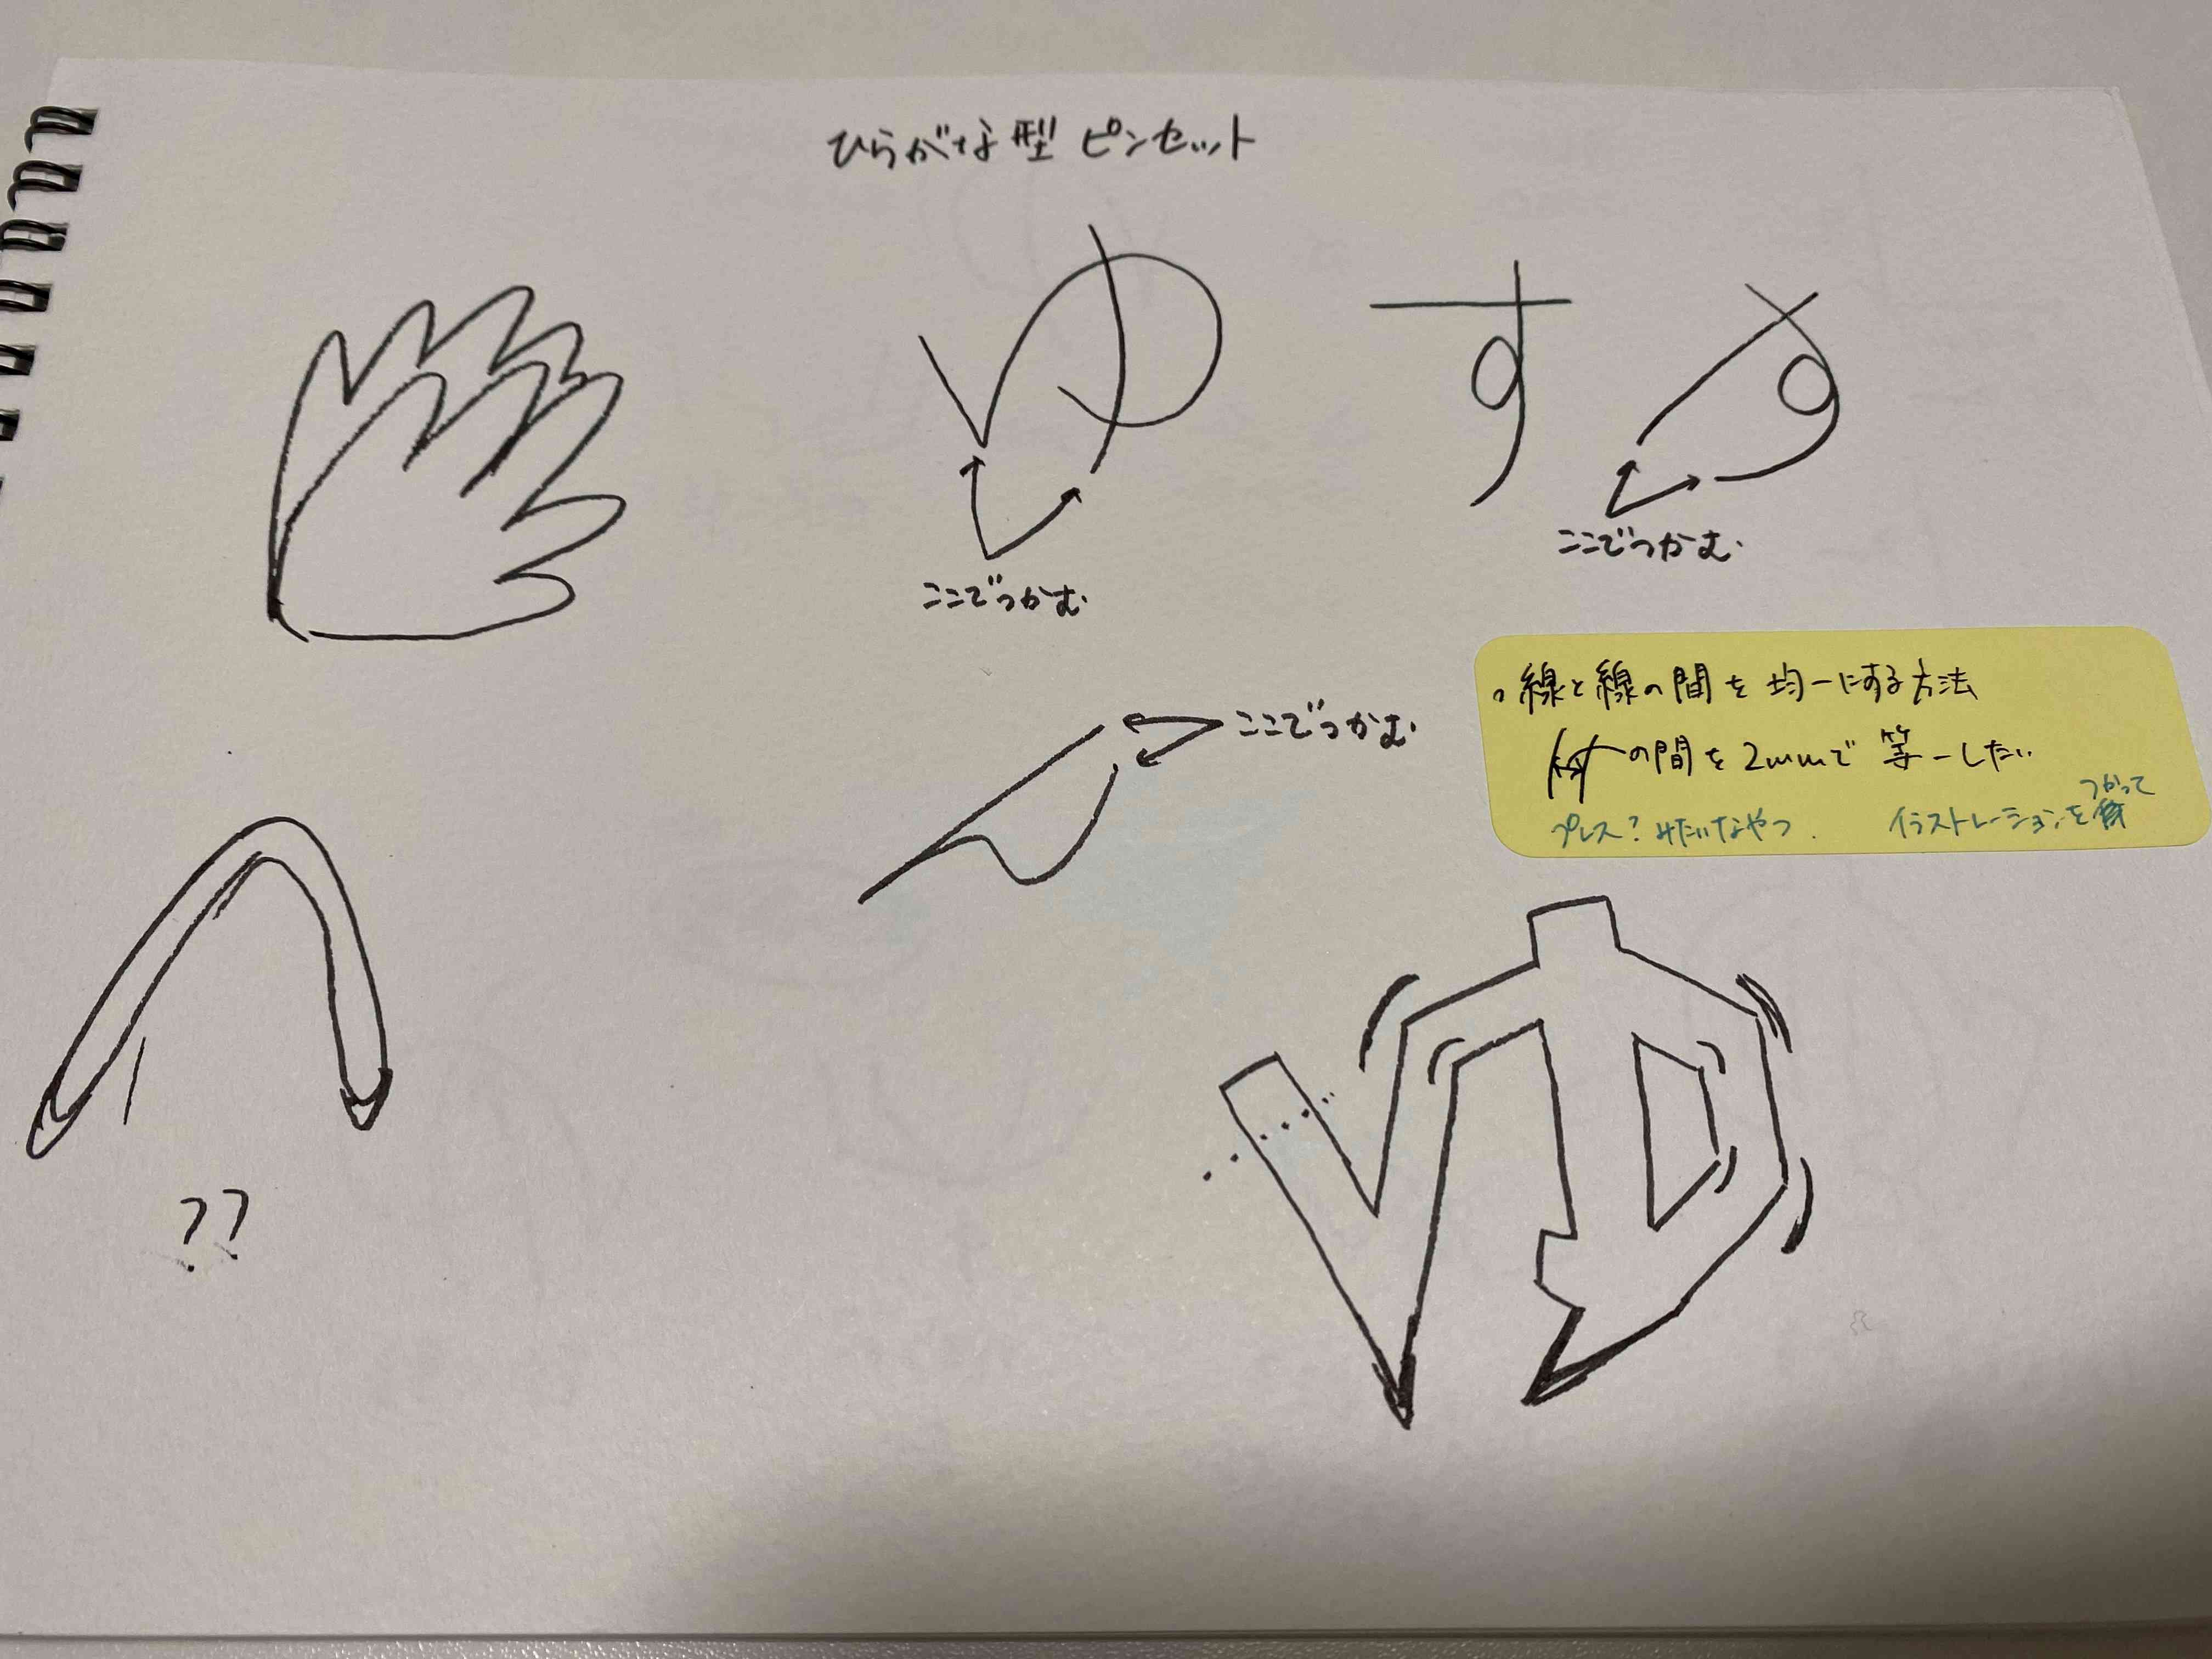 ひらがな型 ピンセット
ゆ
す
す
ここでつかむ
ここでつかむ
ここでつかむ
。線と線の間を均一にする方法
の間を2mmで等一したい
プレス?みたいなやつ.
イラストレーションをつかって
??
ゆ